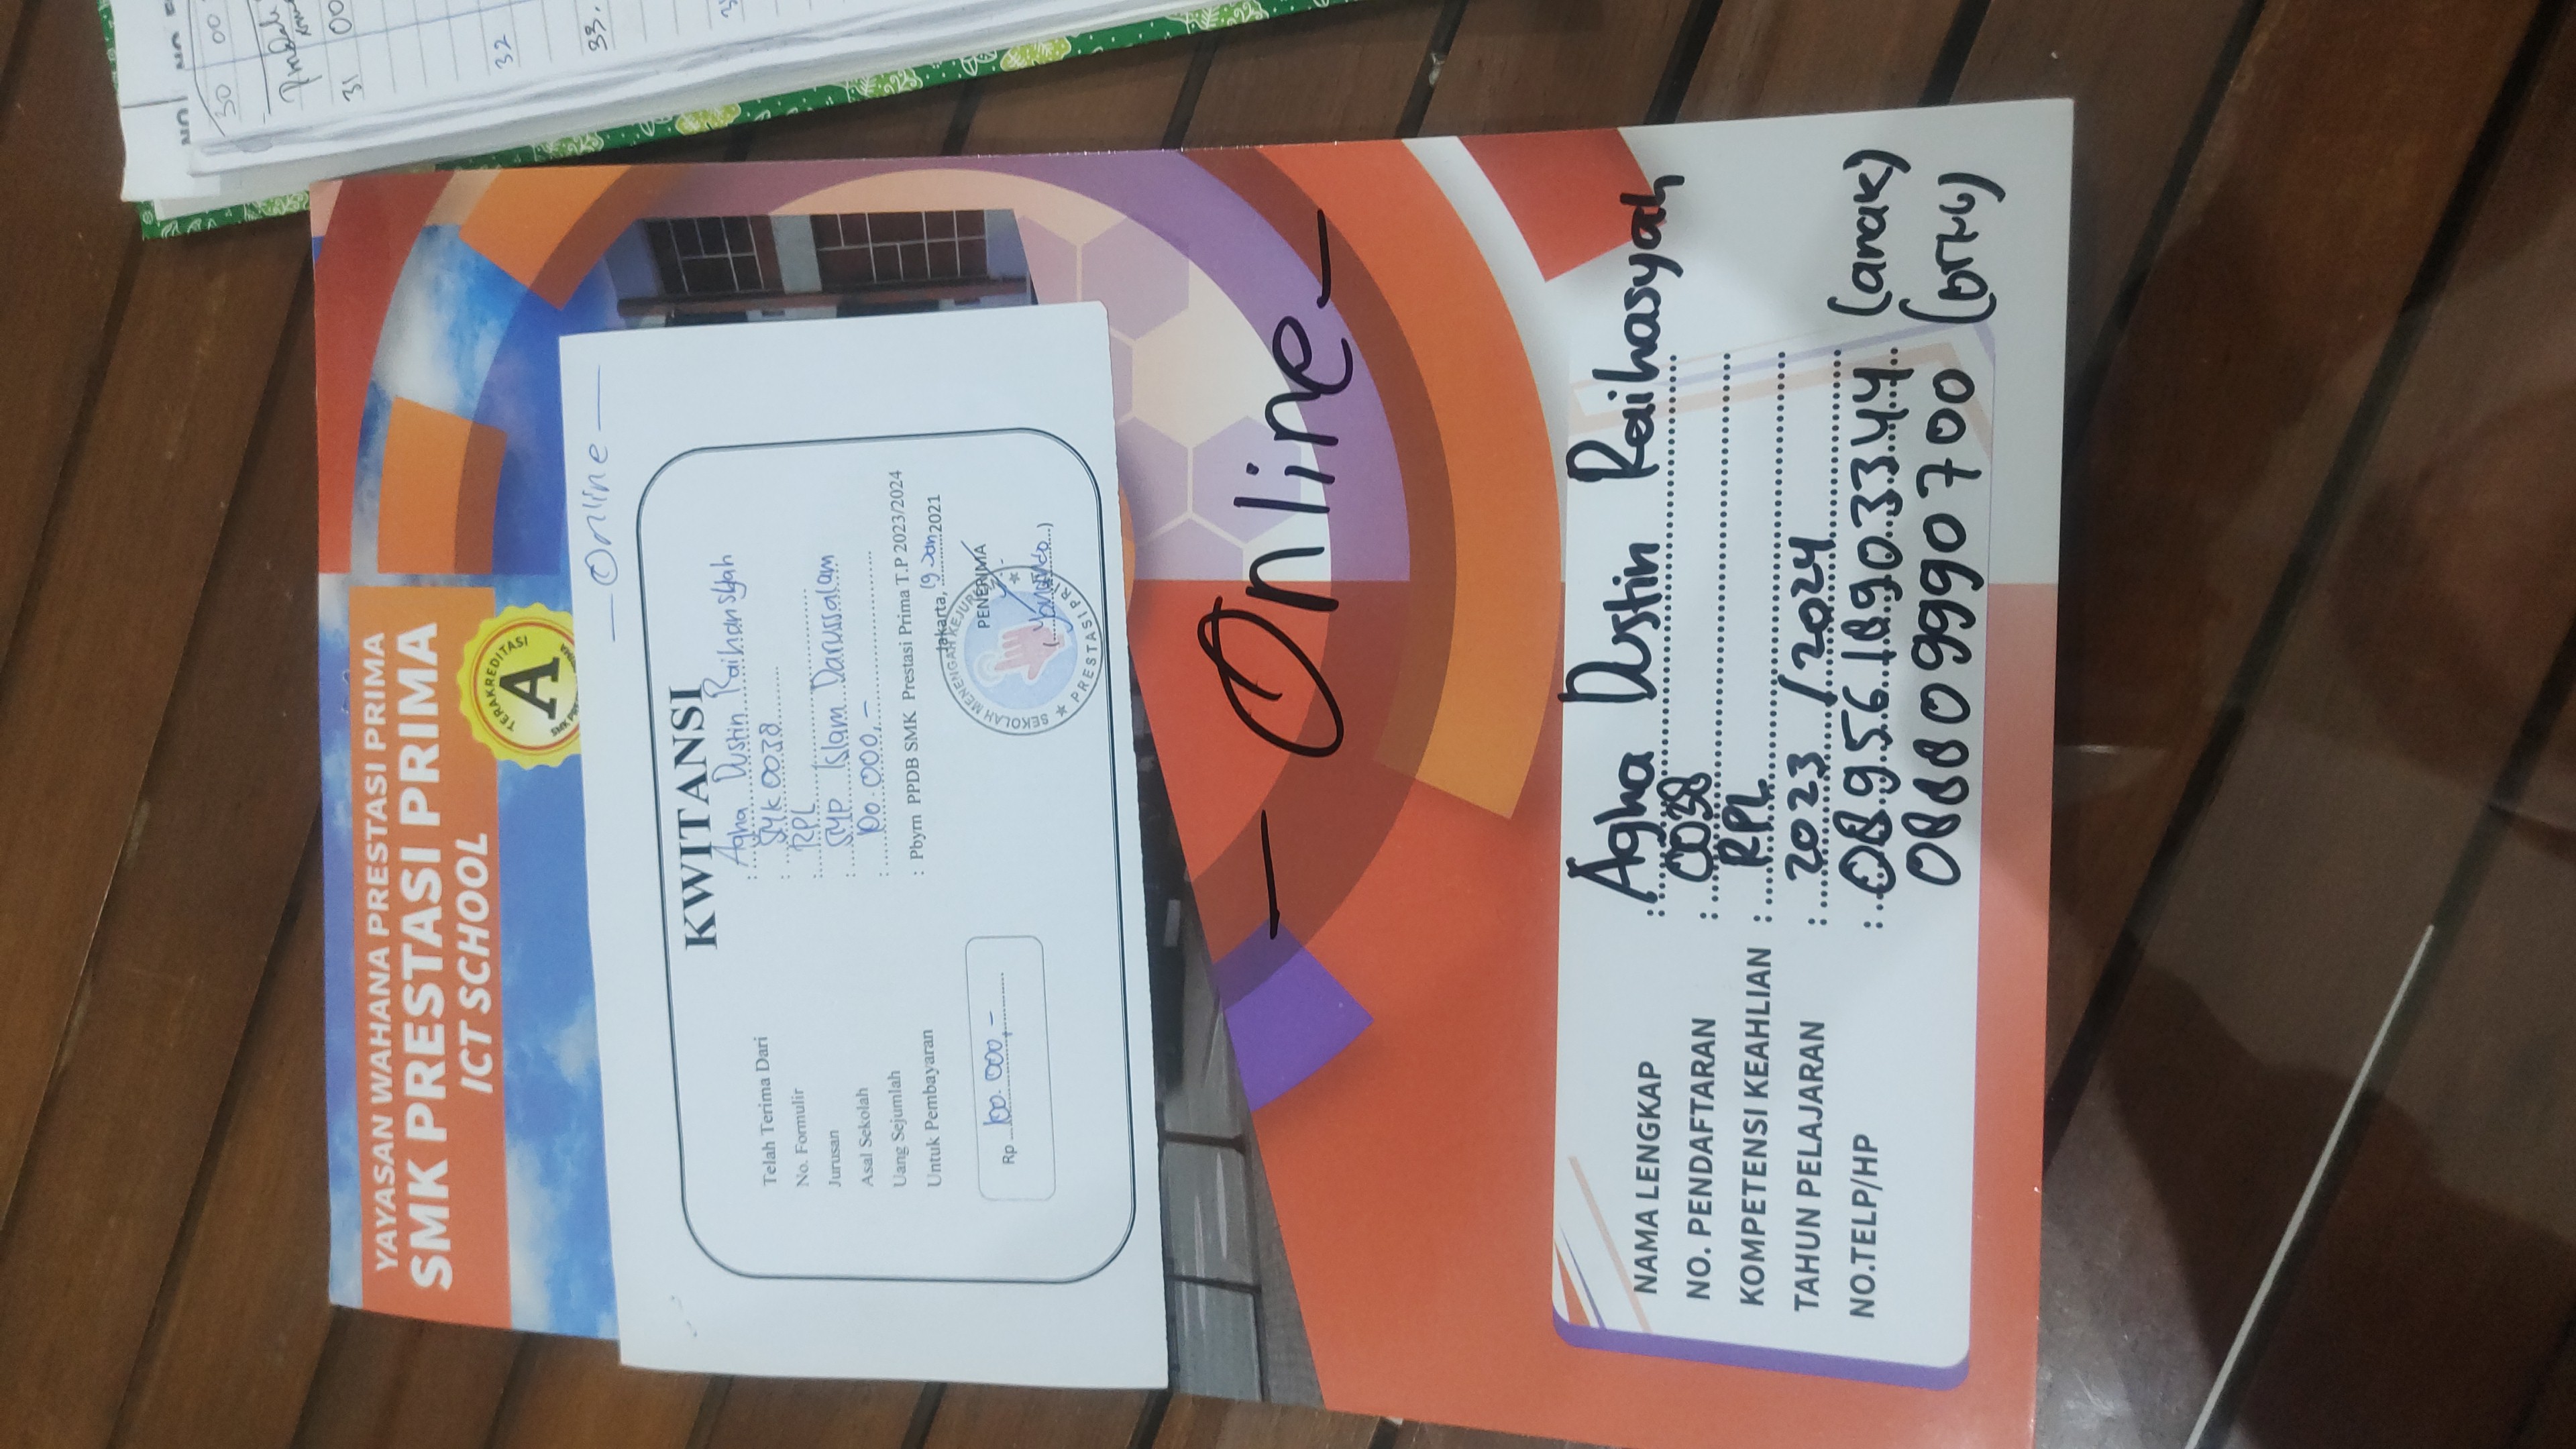 YAYASAN WAHANA PRESTASI PRIMA
SMK PRESTASI PRIMA
ICT SCHOOL
TERAKREDITASI
A
SMK PRESTASI PRIMA
- Online -
KWITANSI
Telah Terima Dari : Agha Dustin Raihansyah
No. Formulir : SMK 0038
Jurusan : RPL
Asal Sekolah : SMP Islam Darussalam
Uang Sejumlah : 100.000,-
Untuk Pembayaran : Pbyrn PPDB SMK Prestasi Prima T.P 2023/2024
Jakarta, 19 Jan 2021
PENERIMA
Rp 100.000,-
SEKOLAH MENENGAH KEJURUAN
PRESTASI PRIMA
- Online -
NAMA LENGKAP : Agha Dustin Raihasyah
NO. PENDAFTARAN : 0038
KOMPETENSI KEAHLIAN : RPL
TAHUN PELAJARAN : 2023 / 2024
NO.TELP/HP : 0895618903344 (anak)
088809990700 (ortu)
30 00
31 00
32
33.